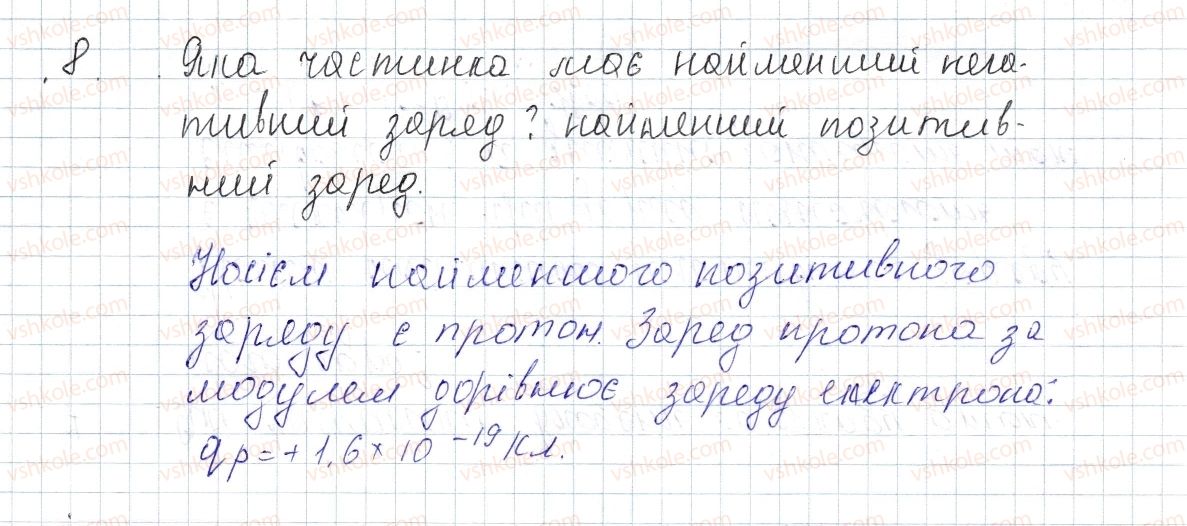 8. Яка частинка має найменший нега-
тивний заряд? найменший позитив-
ний заряд.
Носієм найменшого позитивного
заряду є протон. Заряд протона за
модулем дорівнює заряду електрона:
qp = + 1,6 × 10 ⁻¹⁹ Кл.